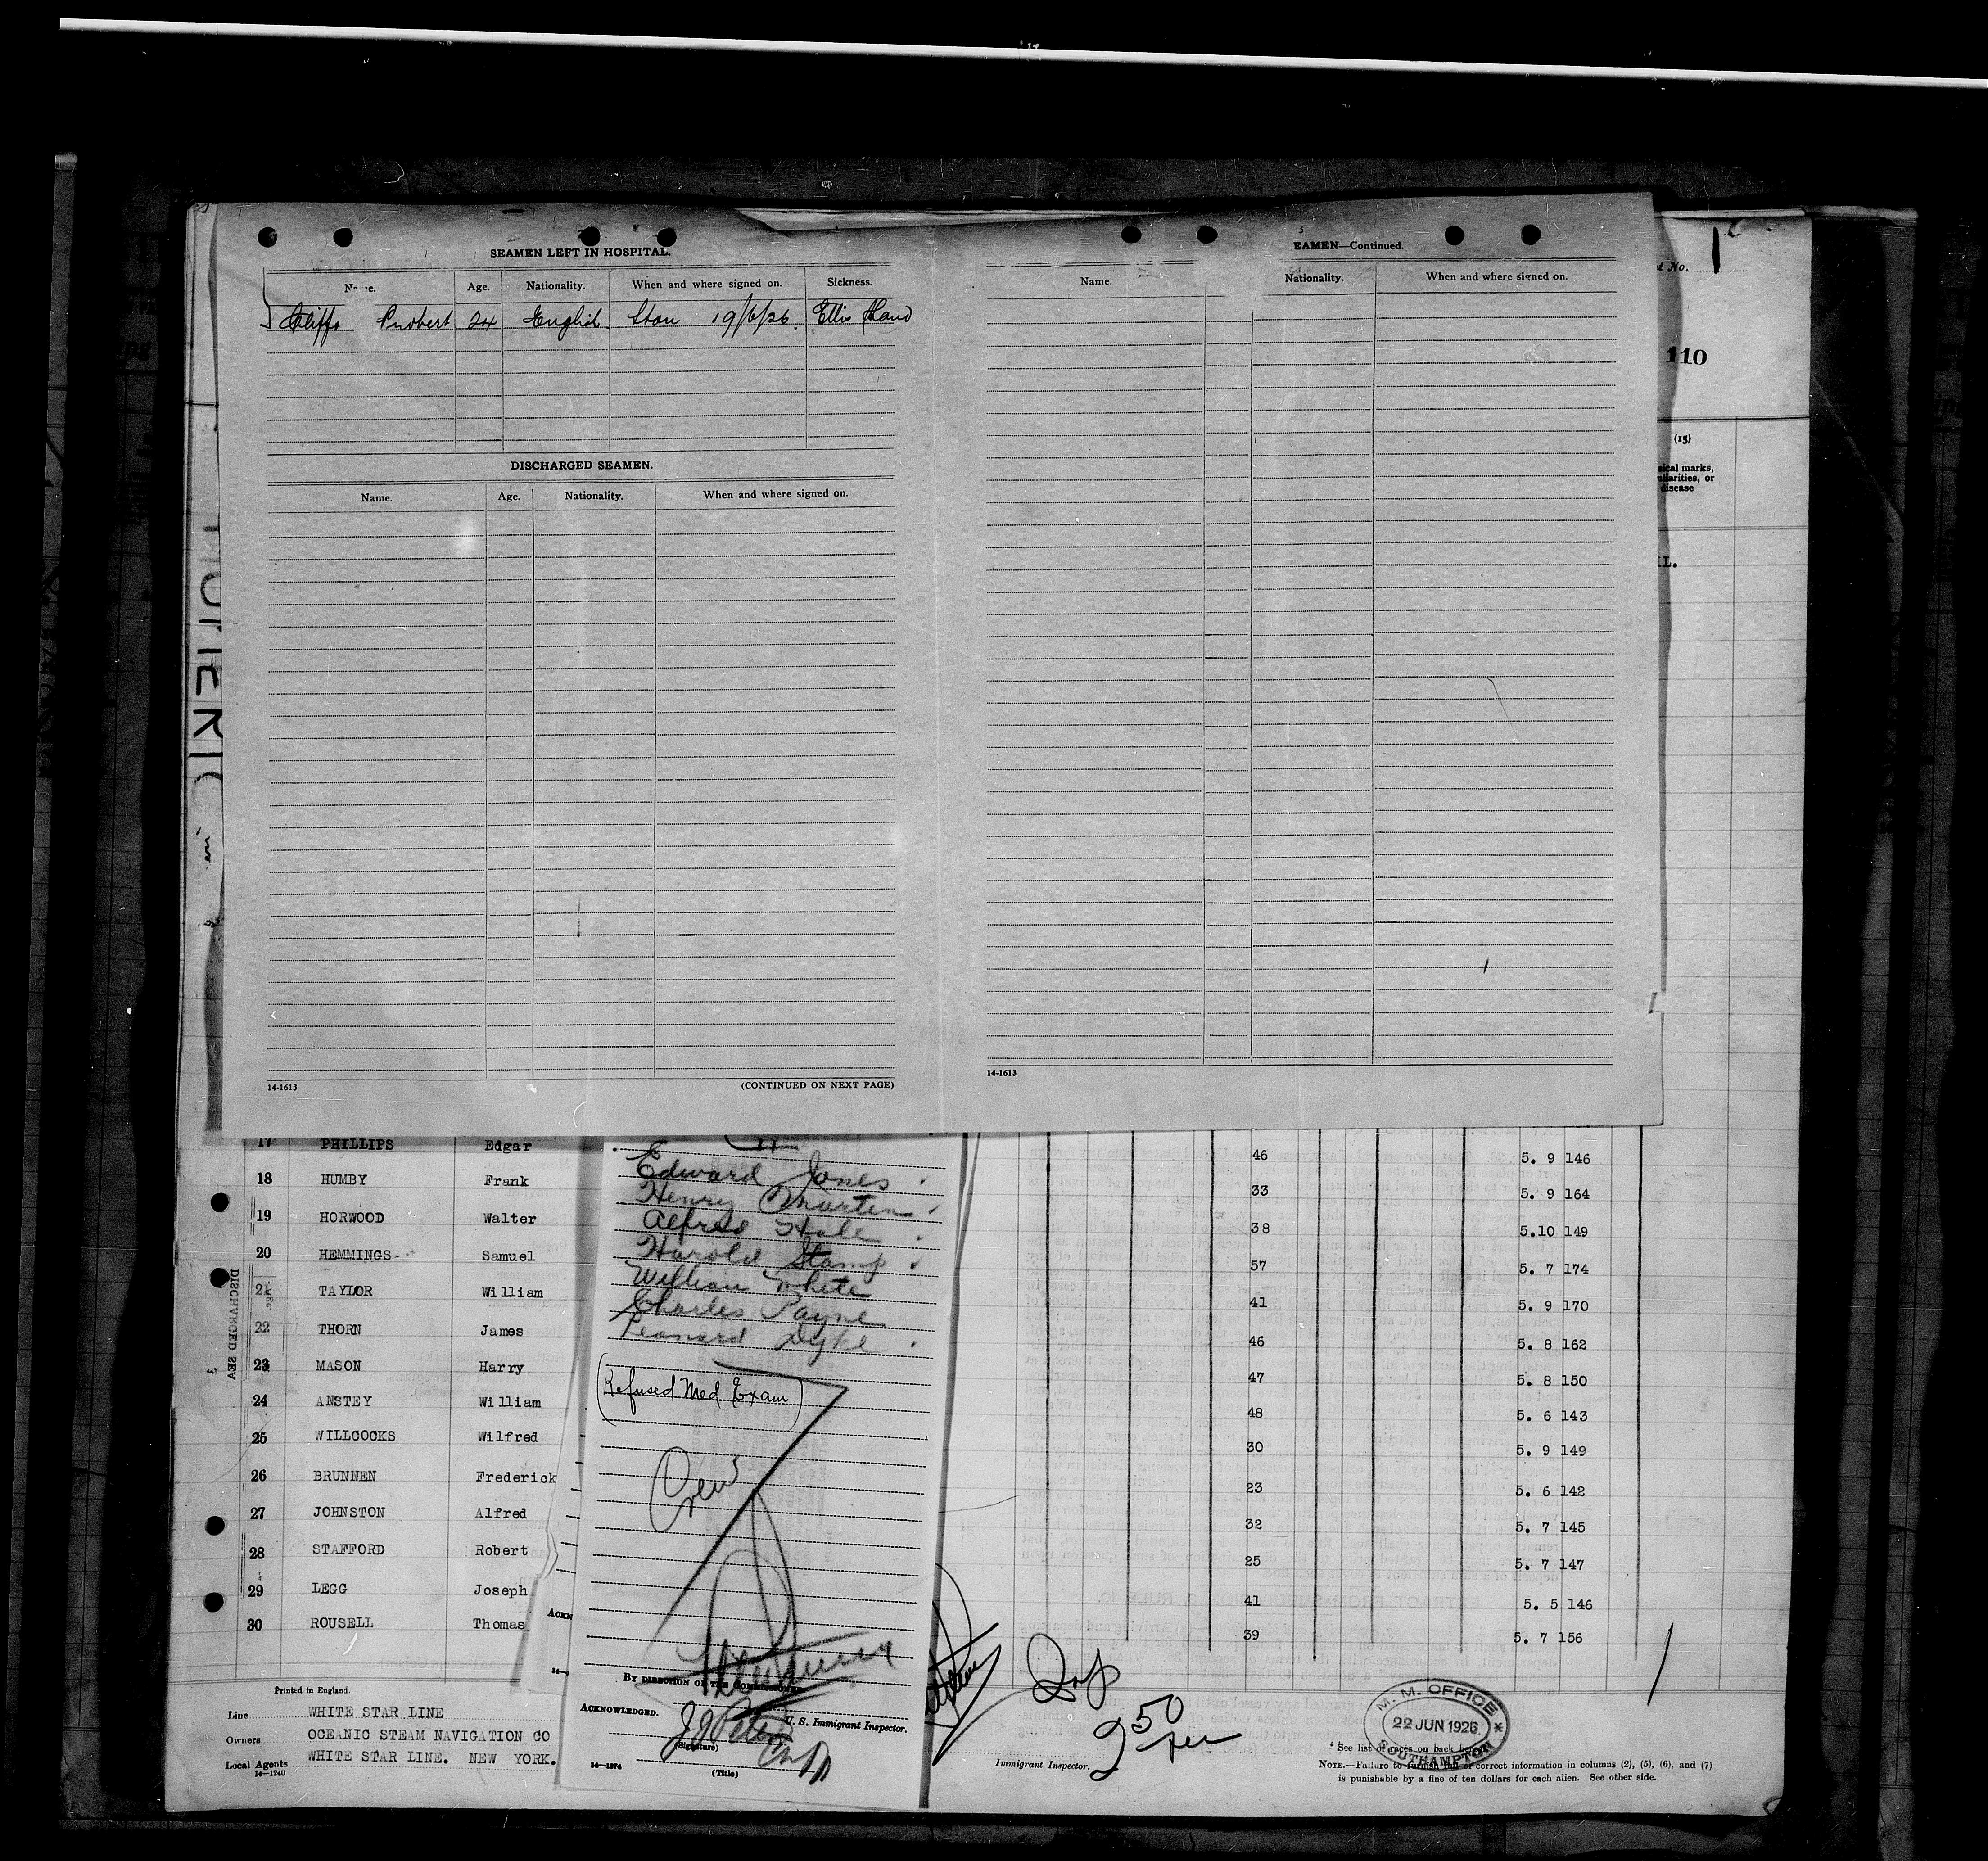 SEAMEN LEFT IN HOSPITAL.
Age. Nationality. When and where signed on. Sickness.
Probert 24 English Ston 19/6/26. Ellis Island
DISCHARGED SEAMEN.
Name. Age. Nationality. When and where signed on.
14-1613 (CONTINUED ON NEXT PAGE)
EAMEN—Continued.
Name. Nationality. When and where signed on.
14-1613
No. 1
110
(15)
sical marks,
uliarities, or
disease
L.
17 PHILLIPS Edgar 46 5. 9 146
18 HUMBY Frank 33 5. 9 164
19 HORWOOD Walter 38 5.10 149
20 HEMMINGS Samuel 57 5. 7 174
21 TAYLOR William 41 5. 9 170
22 THORN James 46 5. 8 162
23 MASON Harry 47 5. 8 150
24 ANSTEY William 48 5. 6 143
25 WILLCOCKS Wilfred 30 5. 9 149
26 BRUNNEN Frederick 23 5. 6 142
27 JOHNSTON Alfred 32 5. 7 145
28 STAFFORD Robert 25 5. 7 147
29 LEGG Joseph 41 5. 5 146
30 ROUSELL Thomas 39 5. 7 156
Edward Jones
Henry Martin
Alfred Hale
Harold Stamp
William White
Charles Payne
Leonard Dyke
(Refused Med Exam)
Crew
By direction of the Commissioner
U. S. Immigrant Inspector.
Acknowledged.
(Signature)
14—1274 (Title)
Printed in England.
Line WHITE STAR LINE
Owners OCEANIC STEAM NAVIGATION CO
Local Agents WHITE STAR LINE. NEW YORK.
14—1240
Immigrant Inspector.
M. M. OFFICE
22 JUN 1926
SOUTHAMPTON
* See list of races on back
NOTE.—Failure to furnish full or correct information in columns (2), (5), (6), and (7)
is punishable by a fine of ten dollars for each alien. See other side.